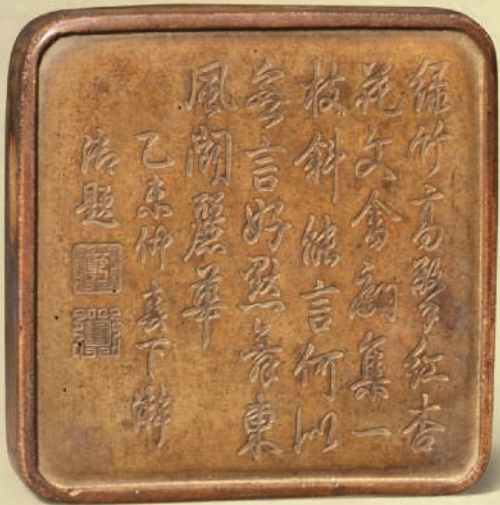 綠竹高紅杏
花文禽翩集一
枝斜能言何似
無言好東
風鬥麗華
乙未仲春下澣
御題